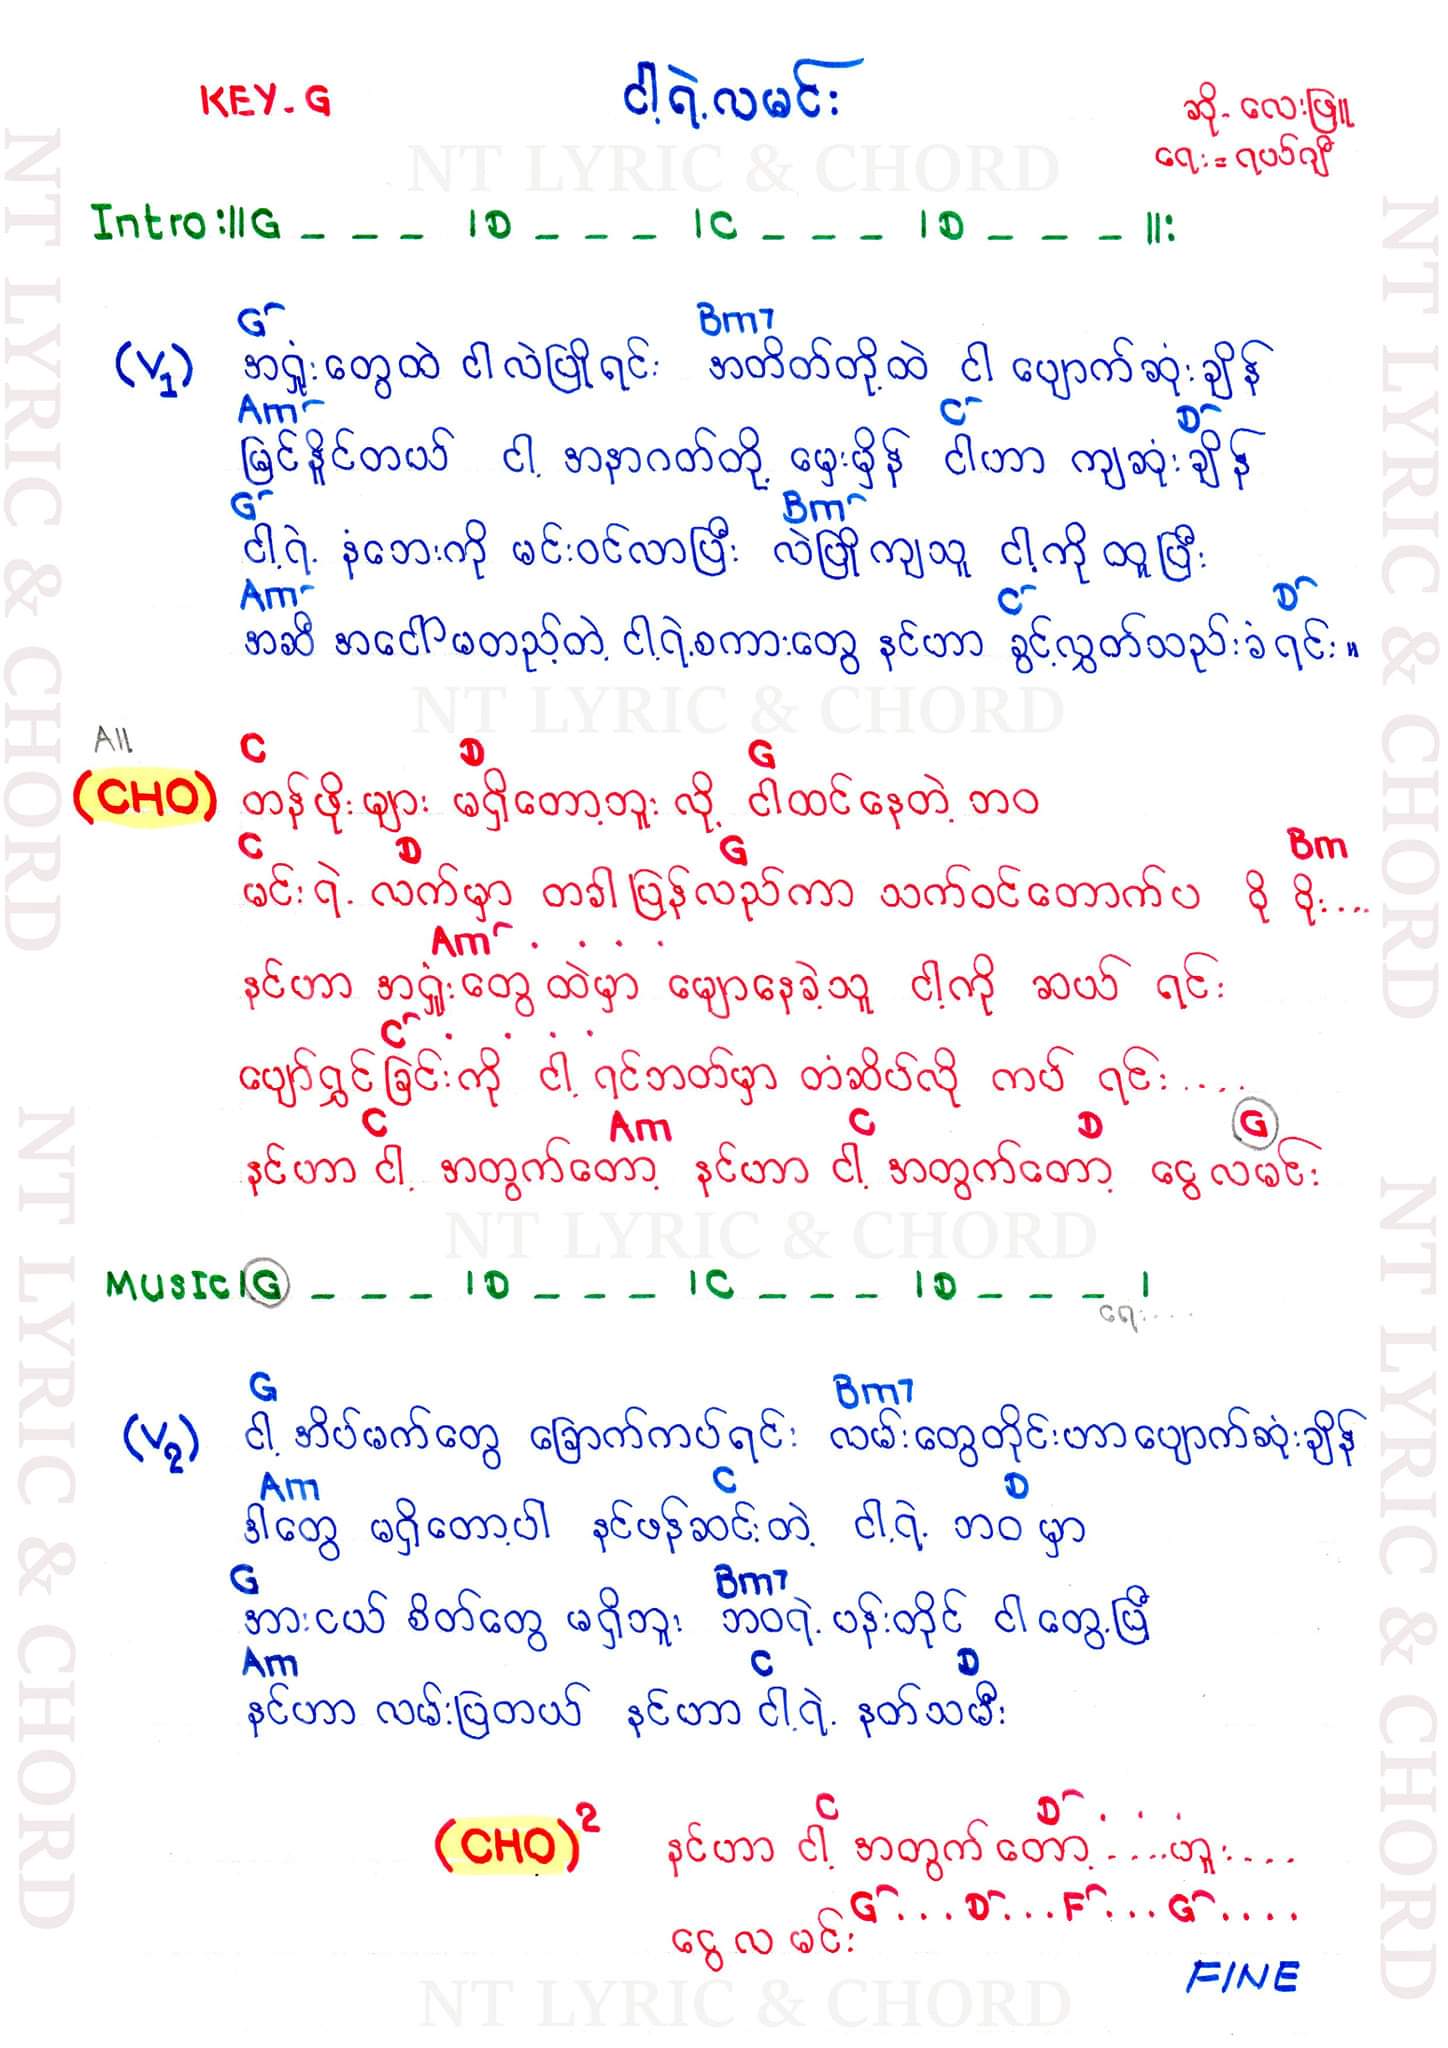 KEY - G
ငါ့ရဲ့လမင်း
ဆို - လေးဖြူ
ရေး = ရယ်ဂျီ
NT LYRIC & CHORD
Intro :||G _ _ _ |D _ _ _ |C _ _ _ |D _ _ _ ||:
G Bm7
(V1) အရှုံးတွေထဲ ငါလဲပြိုရင်း အတိတ်တို့ထဲ ငါ ပျောက်ဆုံးချိန်
Am C D
မြင်နိုင်တယ် ငါ့ အနာဂတ်တို့ မှေးမှိန် ငါဟာ ကျဆုံးချိန်
G Bm
ငါ့ရဲ့ နံဘေးကို မင်းဝင်လာပြီး လဲပြိုကျသူ ငါ့ကို ထူပြီး
Am C D
အဆီ အငေါ်မတည့်တဲ့ ငါ့ရဲ့စကားတွေ နင်ဟာ ခွင့်လွှတ်သည်းခံရင်း။
NT LYRIC & CHORD
All
C D G
(CHO) တန်ဖိုးများ မရှိတော့ဘူးလို့ ငါထင်နေတဲ့ဘဝ
C D G Bm
မင်းရဲ့ လက်မှာ တခါပြန်လည်ကာ သက်ဝင်တောက်ပ ဖို့ ဖိုး....
Am . . . .
နင်ဟာ အရှုံးတွေထဲမှာ မျောနေခဲ့သူ ငါ့ကို ဆယ် ရင်း
C . . . .
ပျော်ရွှင်ခြင်းကို ငါ့ ရင်ဘတ်မှာ တံဆိပ်လို ကပ် ရင်း....
C Am C D G
နင်ဟာ ငါ့ အတွက်တော့ နင်ဟာ ငါ့ အတွက်တော့ ငွေလမင်း
NT LYRIC & CHORD
Music |G _ _ _ |D _ _ _ |C _ _ _ |D _ _ _ |
ရေး....
G Bm7
(V2) ငါ့ အိပ်မက်တွေ ခြောက်ကပ်ရင်း လမ်းတွေတိုင်းဟာပျောက်ဆုံးချိန်
Am C D
ဒါတွေ မရှိတော့ပါ နင်ဖန်ဆင်းတဲ့ ငါ့ရဲ့ ဘဝ မှာ
G Bm7
အားငယ် စိတ်တွေ မရှိဘူး ဘဝရဲ့ ပန်းတိုင် ငါတွေ့ပြီ
Am C D
နင်ဟာ လမ်းပြတယ် နင်ဟာ ငါ့ရဲ့ နတ်သမီး
C D . . .
(CHO)2 နင်ဟာ ငါ့ အတွက် တော့ .....ဟူး....
G ... D ... F ... G ....
ငွေ လ မင်း
FINE
NT LYRIC & CHORD
NT LYRIC & CHORD
NT LYRIC & CHORD
NT LYRIC & CHORD
NT LYRIC & CHORD